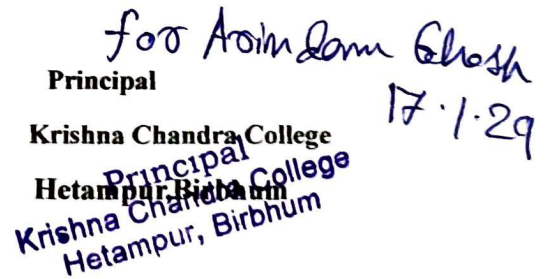 for Arindam Ghosh
17.1.29
Principal
Krishna Chandra College
Hetampur, Birbhum
Principal
Krishna Chandra College
Hetampur, Birbhum